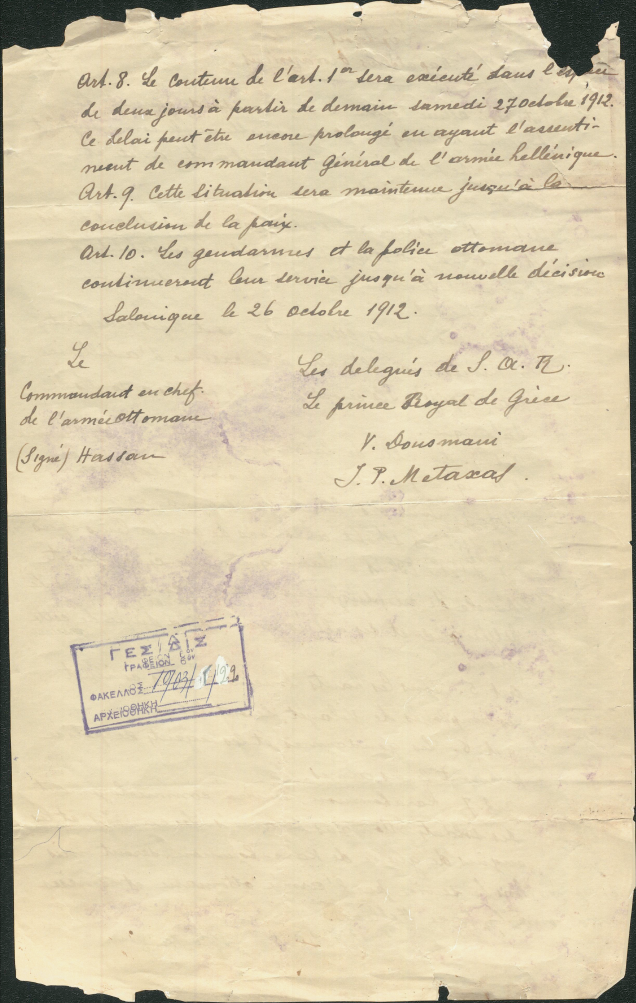 Art. 8. Le contenu de l'art. 1er sera exécuté dans l'espace
de deux jours à partir de demain samedi 27 octobre 1912.
Ce delai peut être encore prolongé en ayant l'assenti-
ment de commandant Général de l'armée hellénique.
Art. 9. Cette situation sera maintenue jusqu'à la
conclusion de la paix.
Art. 10. Les gendarmes et la police ottomane
continueront leur service jusqu'à nouvelle décision
Salonique le 26 octobre 1912.
Le
Commandant en chef.
de l'armée ottomane
(Signé) Hassan
Les delegués de S. A. R.
Le prince Royal de Grèce
V. Dousmani
J. P. Metaxas.
ΓΕΣ/ΔΙΣ
ΓΡΑΦΕΙΟΝ
ΦΑΚΕΛΛΟΣ
ΑΡΧΕΙΟΘΗΚΗ